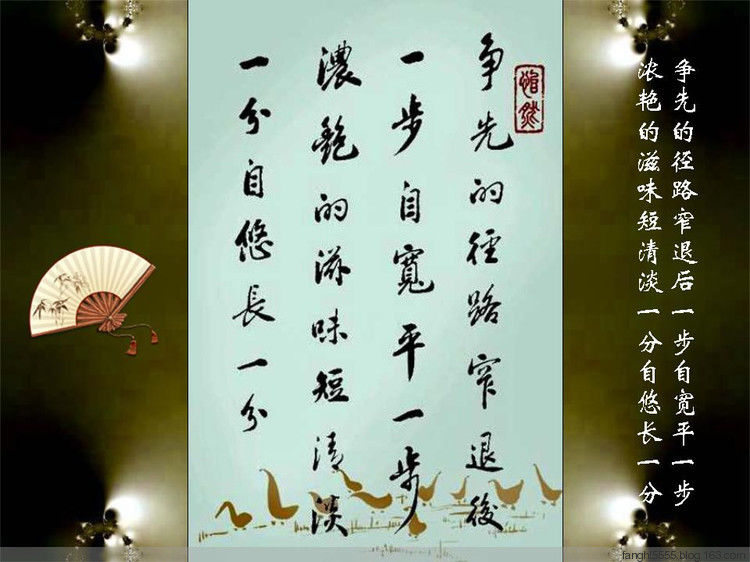 争先的径路窄退后一步自宽平一步
浓艳的滋味短清淡一分自悠长一分
争先的徑路窄退後
一步自寬平一步
濃艷的滋味短清淡
一分自悠長一分
fanghl5555.blog.163.com